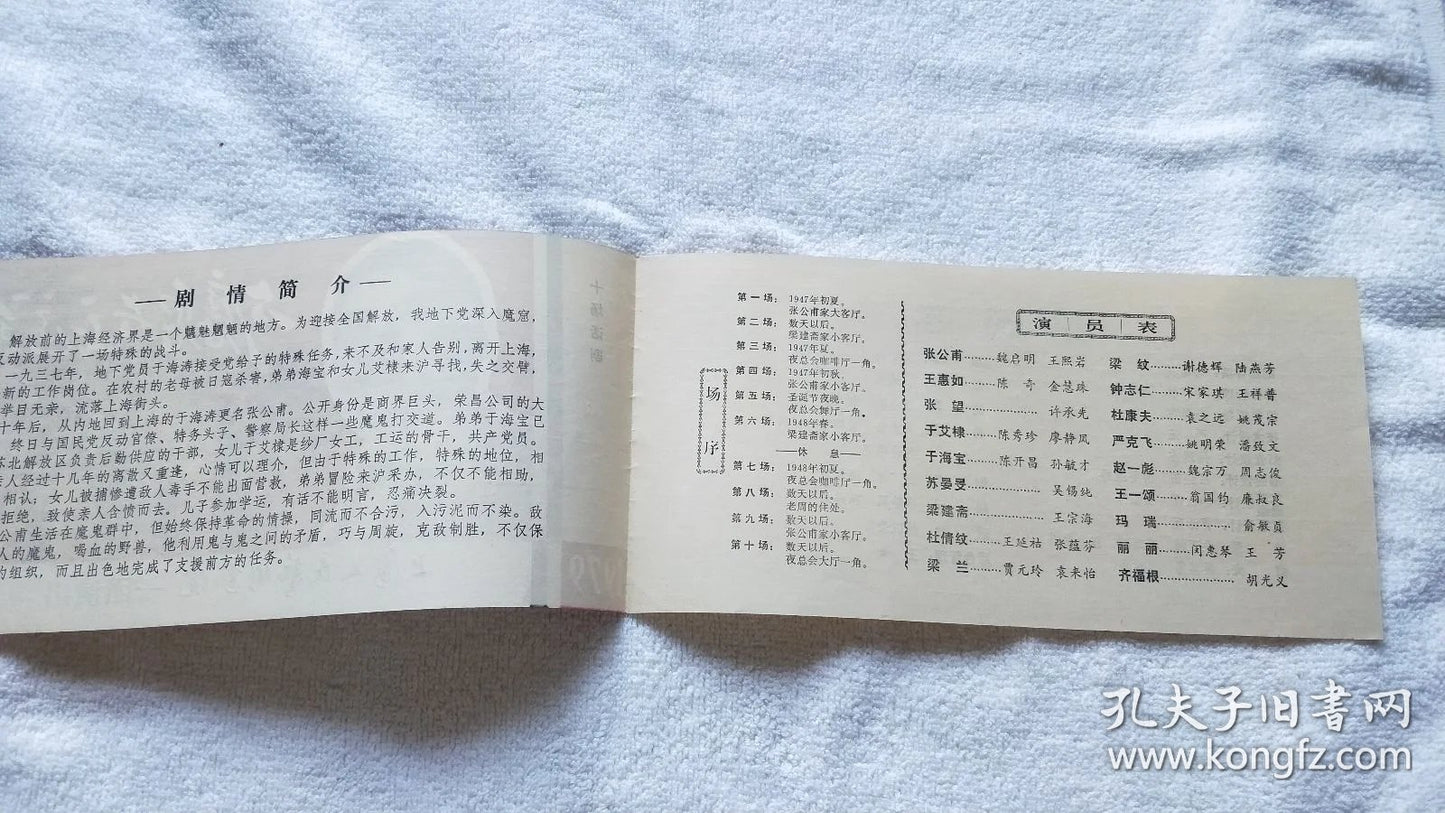 —剧情简介—
解放前的上海经济界是一个魑魅魍魉的地方。为迎接全国解放，我地下党深入魔窟，
反动派展开了一场特殊的战斗。
一九三七年，地下党员于海涛接受党给予的特殊任务，来不及和家人告别，离开上海，
新的工作岗位。在农村的老母被日寇杀害，弟弟海宝和女儿艾棣来沪寻找，失之交臂，
举目无亲，流落上海街头。
十年后，从内地回到上海的于海涛更名张公甫。公开身份是商界巨头，荣昌公司的大
终日与国民党反动官僚、特务头子、警察局长这样一些魔鬼打交道。弟弟于海宝已
苏北解放区负责后勤供应的干部，女儿于艾棣是纱厂女工，工运的骨干，共产党员。
亲人经过十几年的离散又重逢，心情可以理介，但由于特殊的工作，特殊的地位，相
相认：女儿被捕惨遭敌人毒手不能出面营救，弟弟冒险来沪采办，不仅不能相助，
拒绝，致使亲人含愤而去。儿子参加学运，有话不能明言，忍痛决裂。
公甫生活在魔鬼群中，但始终保持革命的情操，同流而不合污，入污泥而不染。敌
人的魔鬼，喝血的野兽，他利用鬼与鬼之间的矛盾，巧与周旋，克敌制胜，不仅保
的组织，而且出色地完成了支援前方的任务。
十场话剧
1979
场序
第一场：1947年初夏。
张公甫家大客厅。
第二场：数天以后。
梁建斋家小客厅。
第三场：1947年夏。
夜总会咖啡厅一角。
第四场：1947年初秋。
张公甫家小客厅。
第五场：圣诞节夜晚。
夜总会舞厅一角。
第六场：1948年春。
梁建斋家小客厅。
——休息——
第七场：1948年初夏。
夜总会咖啡厅一角。
第八场：数天以后。
老周的住处。
第九场：数天以后。
张公甫家小客厅。
第十场：数天以后。
夜总会大厅一角。
演员表
张公甫……魏启明 王熙岩
王惠如……陈奇 金慧珠
张望……许承先
于艾棣……陈秀珍 廖静凤
于海宝……陈开昌 孙敏才
苏晏旻……吴锡纯
梁建斋……王宗海
杜倩纹……王延祜 张蕴芬
梁兰……贾元玲 袁来怡
梁纹……谢德辉 陆燕芳
钟志仁……宋家琪 王祥普
杜康夫……袁之远 姚茂宗
严克飞……姚明荣 潘致文
赵一彪……魏宗万 周志俊
王一颂……翁国钧 廉叔良
玛瑞……俞敏贞
丽丽……闵惠琴 王芳
齐福根……胡光义
孔夫子旧书网
www.kongfz.com